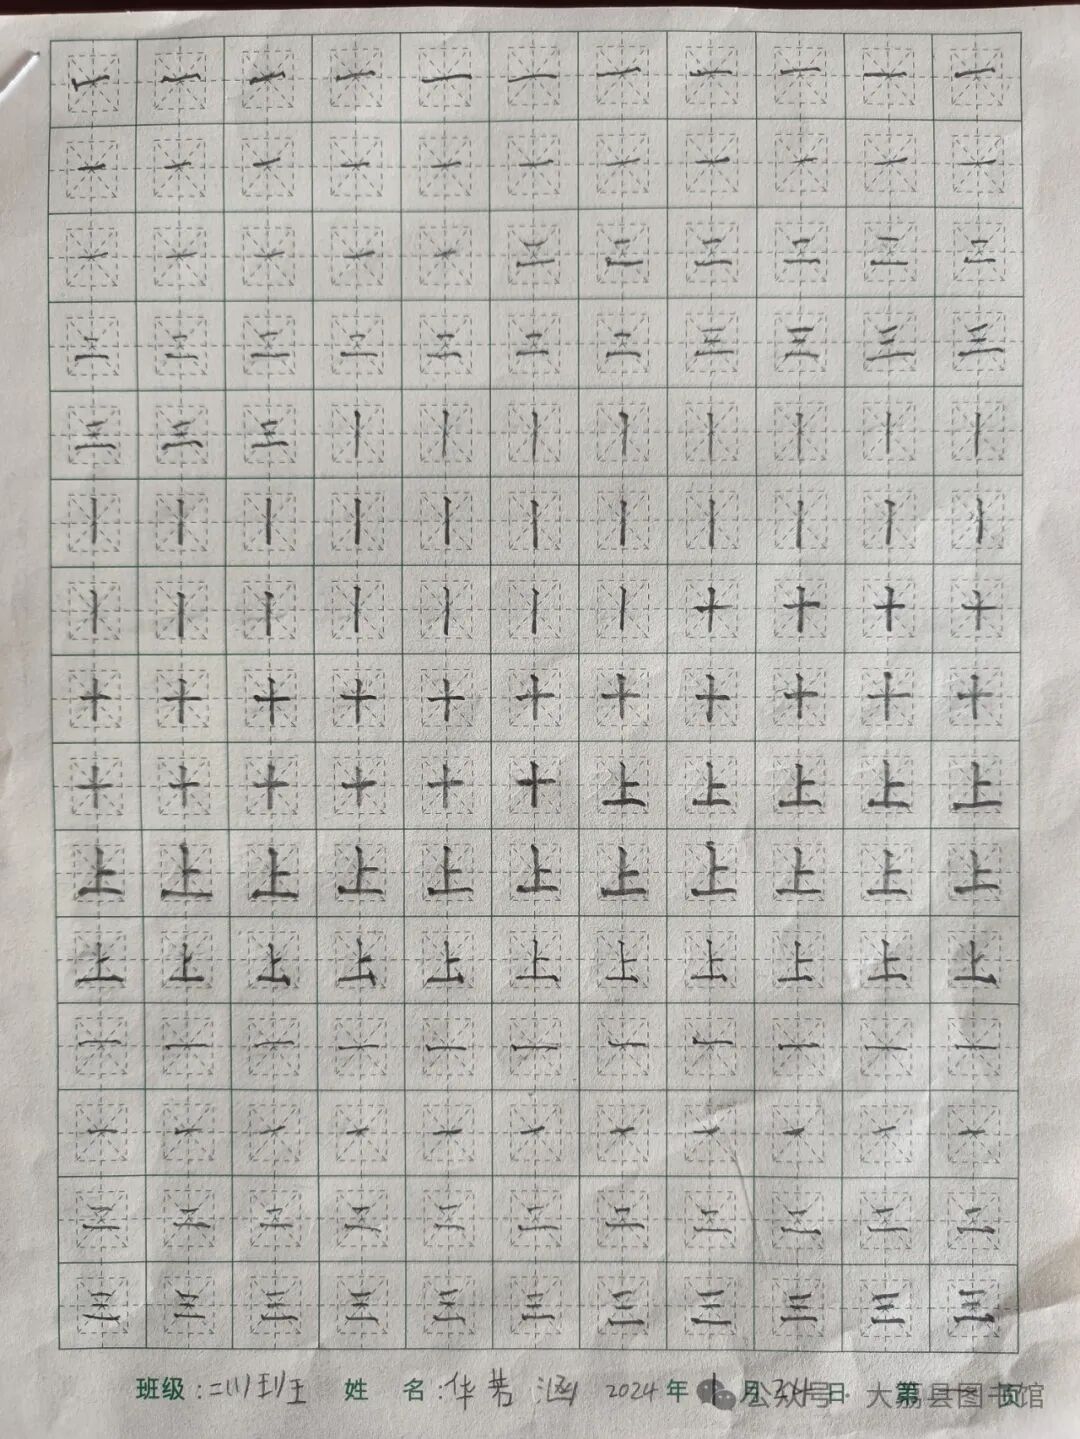 一一一一一一一一一一一
一一一一一一一一一一一
一一一一一三三三三三三
三三三三三三三三三三三
三三三丨丨丨丨丨丨丨丨
丨丨丨丨丨丨丨丨丨丨丨
丨丨丨丨丨丨丨十十十十
十十十十十十十十十十十
十十十十十十上上上上上
上上上上上上上上上上上
上上上上上上上上上上上
一一一一一一一一一一一
一一一一一一一一一一一
三三三三三三三三三三三
三三三三三三三三三三三
班级:二(1)班 姓 名:华 涵 2024年1月 日 第 页
公众号·大荔县图书馆